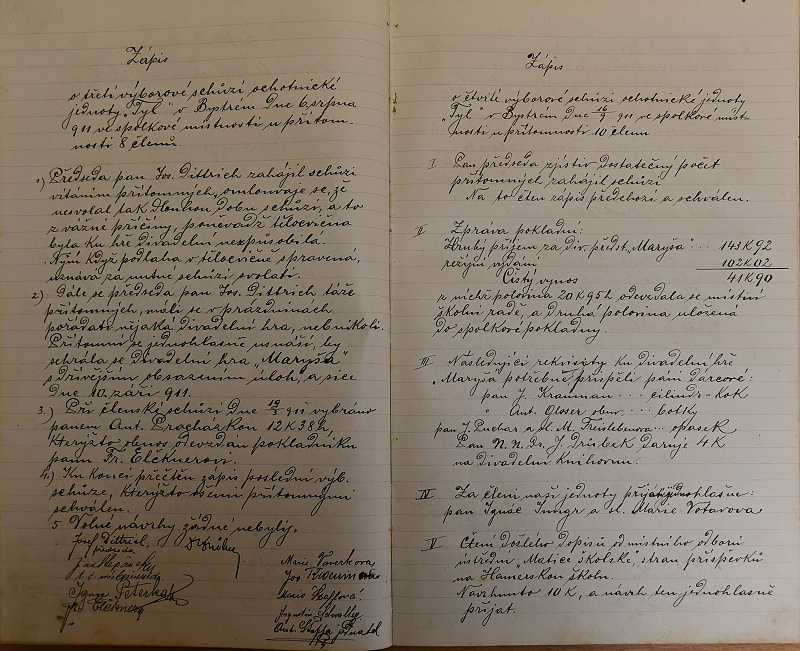 Zápis
o třetí výborové schůzi ochotnické
jednoty "Tyl" v Bystrém dne 6 srpna
911 ve spolkové místnosti, u přítom-
nosti 8 členů
1) Předseda pan Jos. Dittrich zahájil schůzi
vítáním přítomných, omlouvaje se, že
nesvolal tak dlouhou dobu schůzi, a to
z vážné příčiny, poněvadž tělocvična
byla ku hře divadelní nezpůsobila.
Nyní když podlaha v tělocvičně spravena,
uznává za nutné schůzi svolati.
2) Dále se předseda pan Jos. Dittrich táže
přítomných, máli se v prázdninách
pořádati nějaká divadelní hra, neb nikoli.
Přítomní se jednohlasně usnáší, by
sehrála se divadelní hra "Maryša"
s dřívějším obsazením úloh, a sice
dne 10. září 911.
3.) Při členské schůzi dne 911 vybráno
panem Ant. Procházkou 12 K 38 h,
kterýžto obnos odevzdán pokladníku
panu Fr. Elčknerovi.
4.) Ku konci přečten zápis poslední výb.
schůze, kterýžto všemi přítomnými
schválen.
5 Volné návrhy žádné nebyly.
Josef Dittrich,
předseda
Ignac Peterka
Fr. Elčkner
Marie Vaverkova
Jos
Marie
Augustin
Ant. Stoppa jednatel
Zápis
o čtvrté výborové schůzi ochotnické jednoty
"Tyl" v Bystrém dne 16/9 911 ve spolkové míst-
nosti u přítomnosti 10 členů
I Pan předseda zjistiv dostatečný počet
přítomných zahájil schůzi
Na to čten zápis předchozí a schválen.
II Zpráva pokladní:
Hrubý příjem za div. předst. "Maryša" ... 143 K 92
režijní vydání 102 K 02
Čistý výnos 41 K 90
z nichž polovina 20 K 95 h odevzdala se místní
školní radě, a druhá polovina uložena
do spolkové pokladny.
III Následující rekvisity ku divadelní hře
"Maryša" potřebné přispěli páni dárcové:
pan J. Krauman ... cilindr - kok
" Ant. Gloser obuv. ... botky
pan J. Puchar a M. ... opasek
Pan N. N. Dr. J. Drábek daruje 4 K
na divadelní knihovnu.
IV Za členi naší jednoty přijati jednohlasně:
pan Ignác a sl. Marie Votavova
V Čtení došlého dopisu od místního odboru
ústřední "Matice školské", stran příspěvků
na Hamerskou školu.
Navrhnuto 10 K, a návrh ten jednohlasně
přijat.